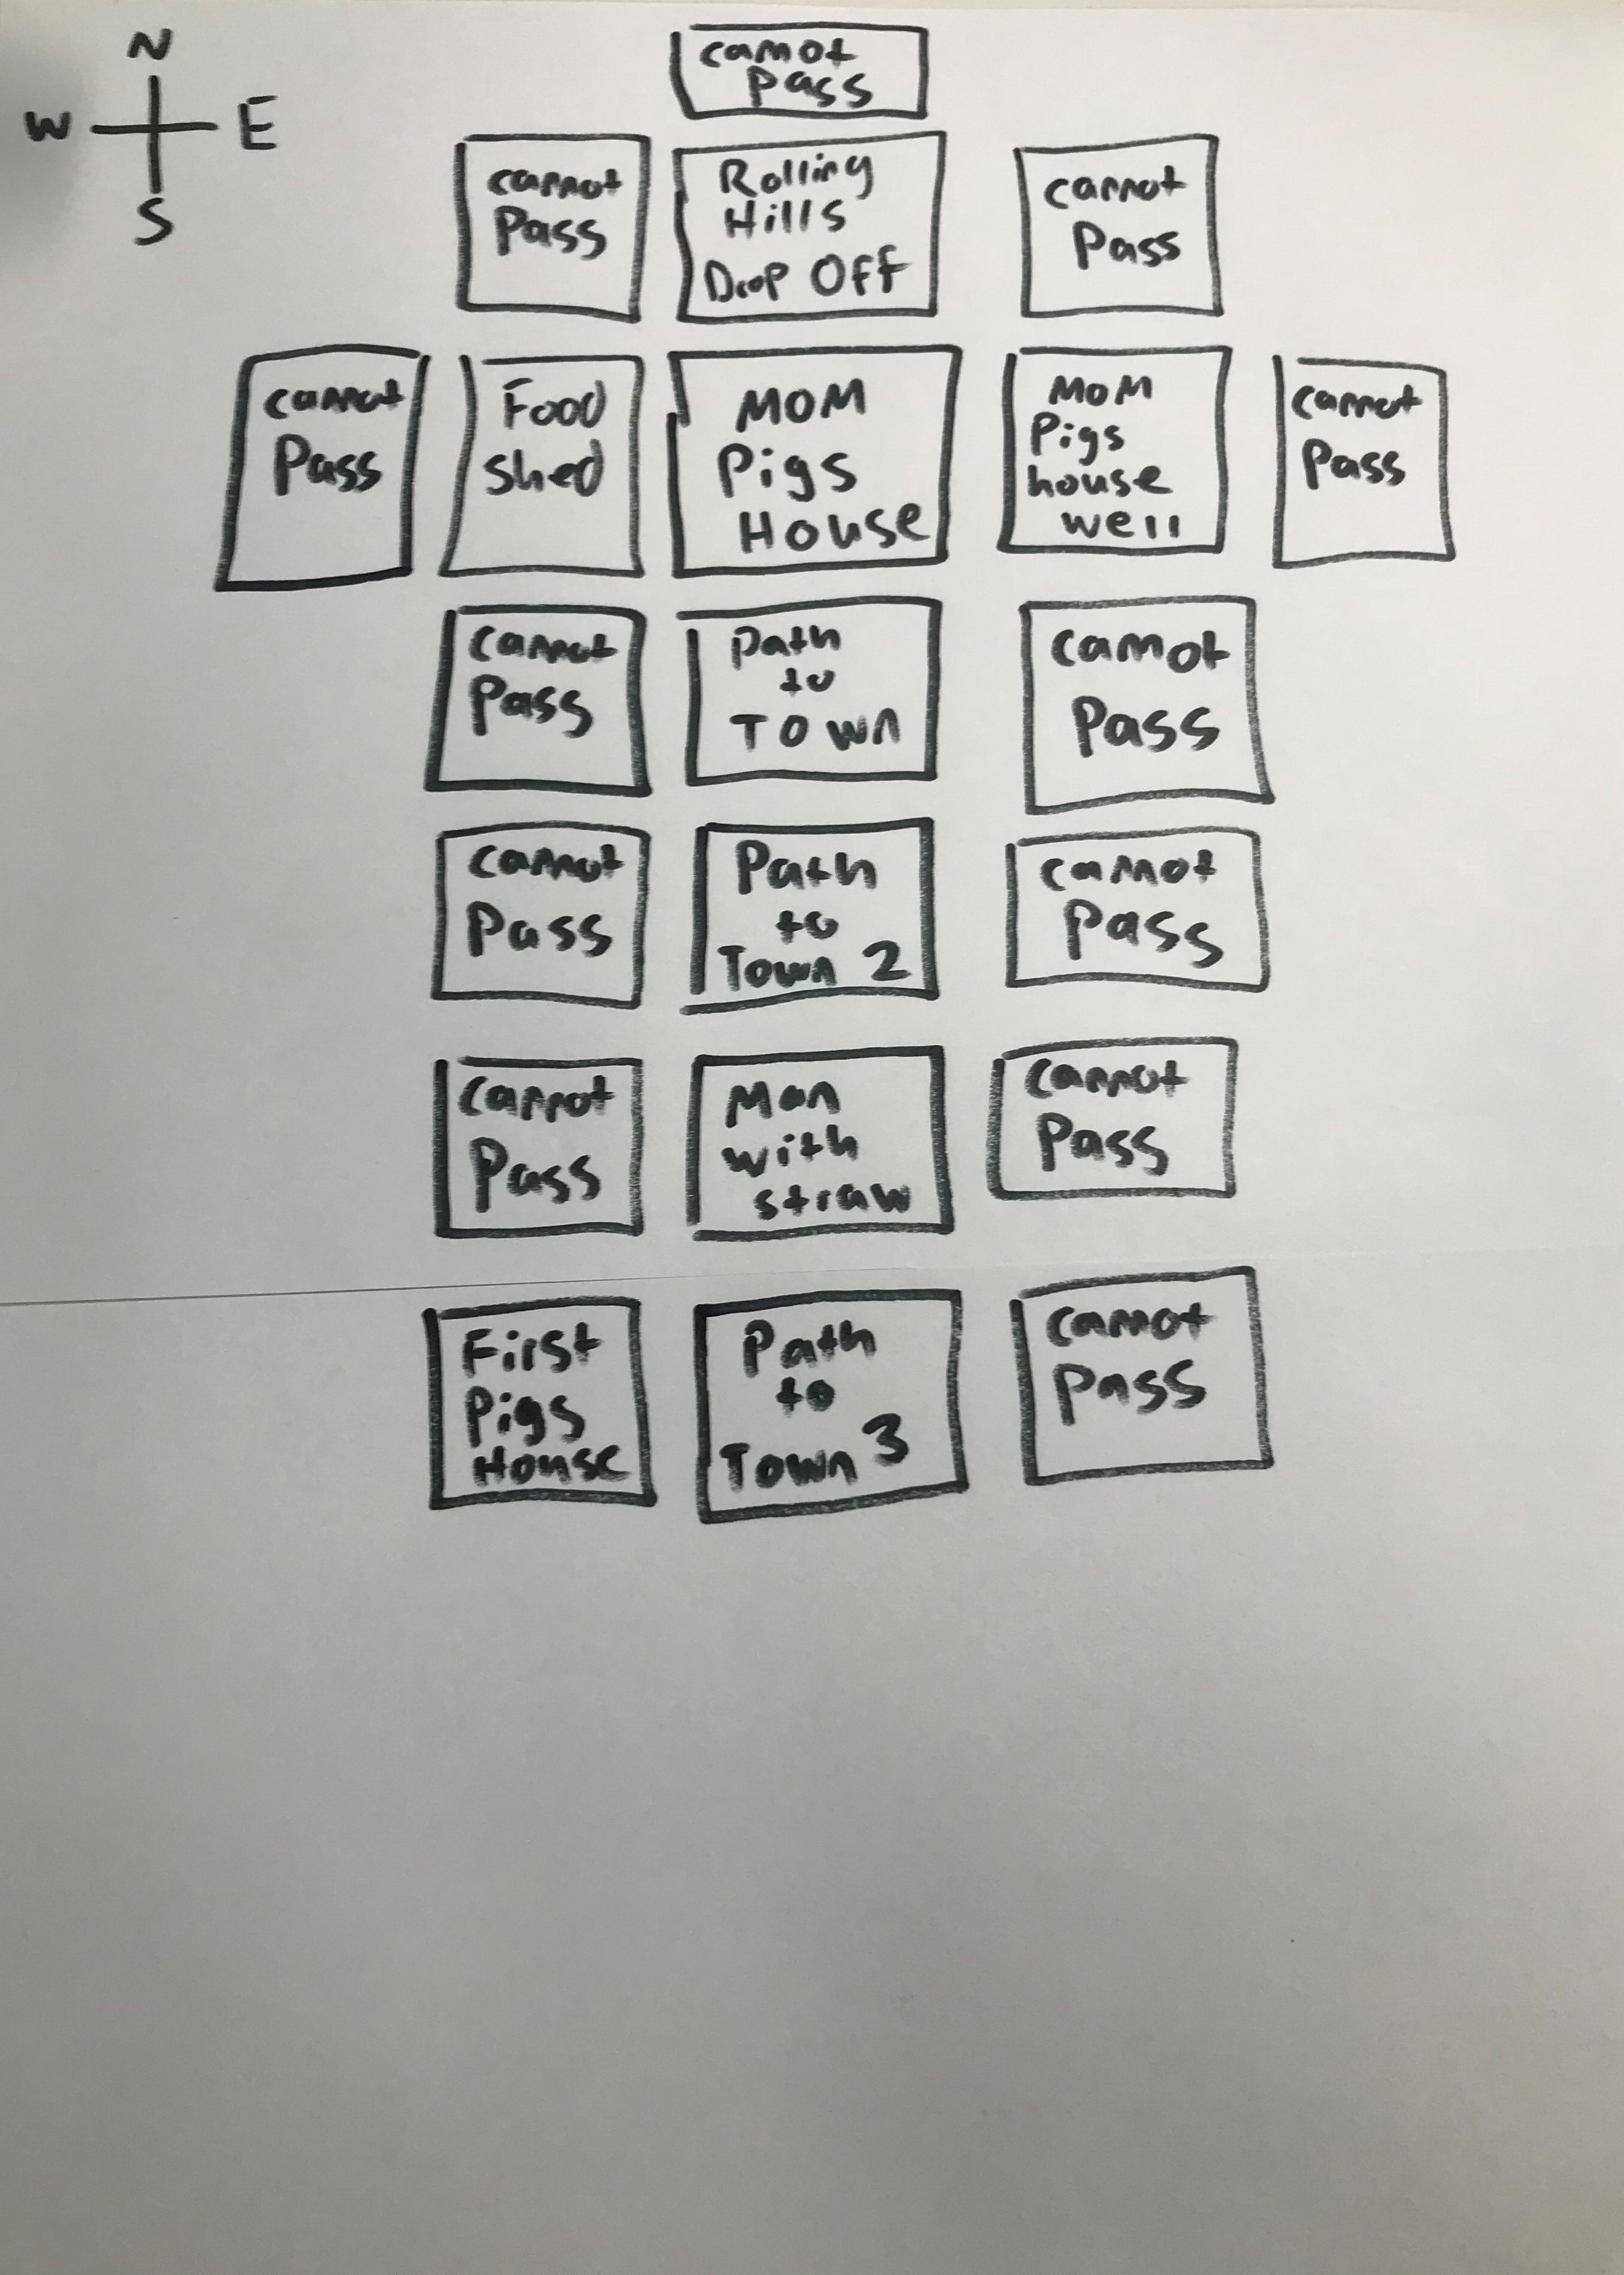 N
W E
S
cannot
pass
cannot
Pass
Rolling
Hills
Drop Off
cannot
Pass
cannot
Pass
Food
shed
MOM
Pigs
House
MOM
Pigs
house
well
cannot
Pass
cannot
Pass
Path
to
TOWN
cannot
Pass
cannot
Pass
Path
to
Town 2
cannot
Pass
cannot
Pass
Man
with
straw
cannot
Pass
First
Pigs
House
Path
to
Town 3
cannot
Pass